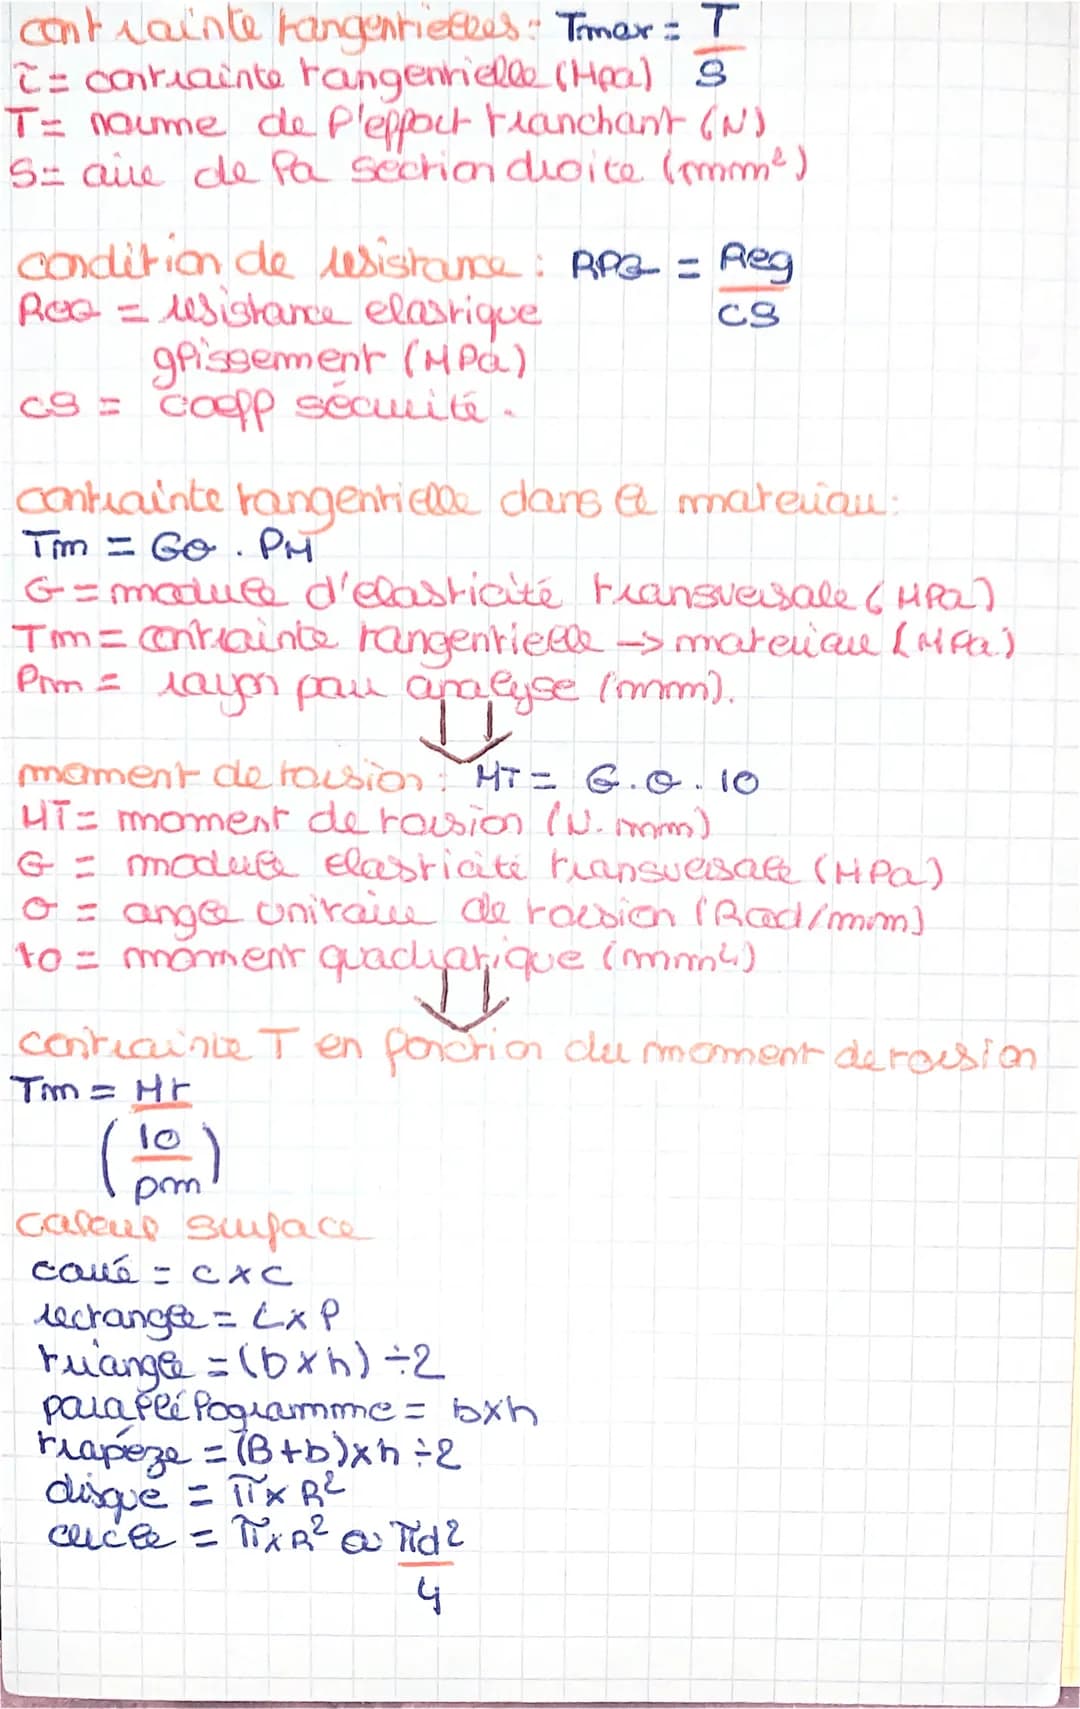 contrainte tangentielles : Tmax = T/S
τ = contrainte tangentielle (Mpa)
T = norme de l'effort tranchant (N)
S = aire de la section droite (mm²)
condition de resistance : RPG = Reg/CS
Reg = resistance elastique
glissement (MPa)
CS = coeff sécurité.
contrainte tangentielle dans le materiau :
Tm = Gθ . PM
G = module d'elasticité transversale (MPa)
Tm = contrainte tangentielle -> materiau (MPa)
Pm = rayon pour analyse (mm).
moment de torsion : MT = G.θ.Io
MT = moment de torsion (N.mm)
G = module elasticité transversale (MPa)
θ = angle unitaire de torsion (Rad/mm)
Io = moment quadratique (mm4)
contrainte T en fonction du moment de torsion
Tm = Mt
(Io/pm)
calcul surface
carré = c x c
rectangle = L x l
triangle = (b x h) ÷ 2
parallélogramme = b x h
trapéze = (B + b) x h ÷ 2
disque = π x R²
cercle = π x R² ou πd²/4